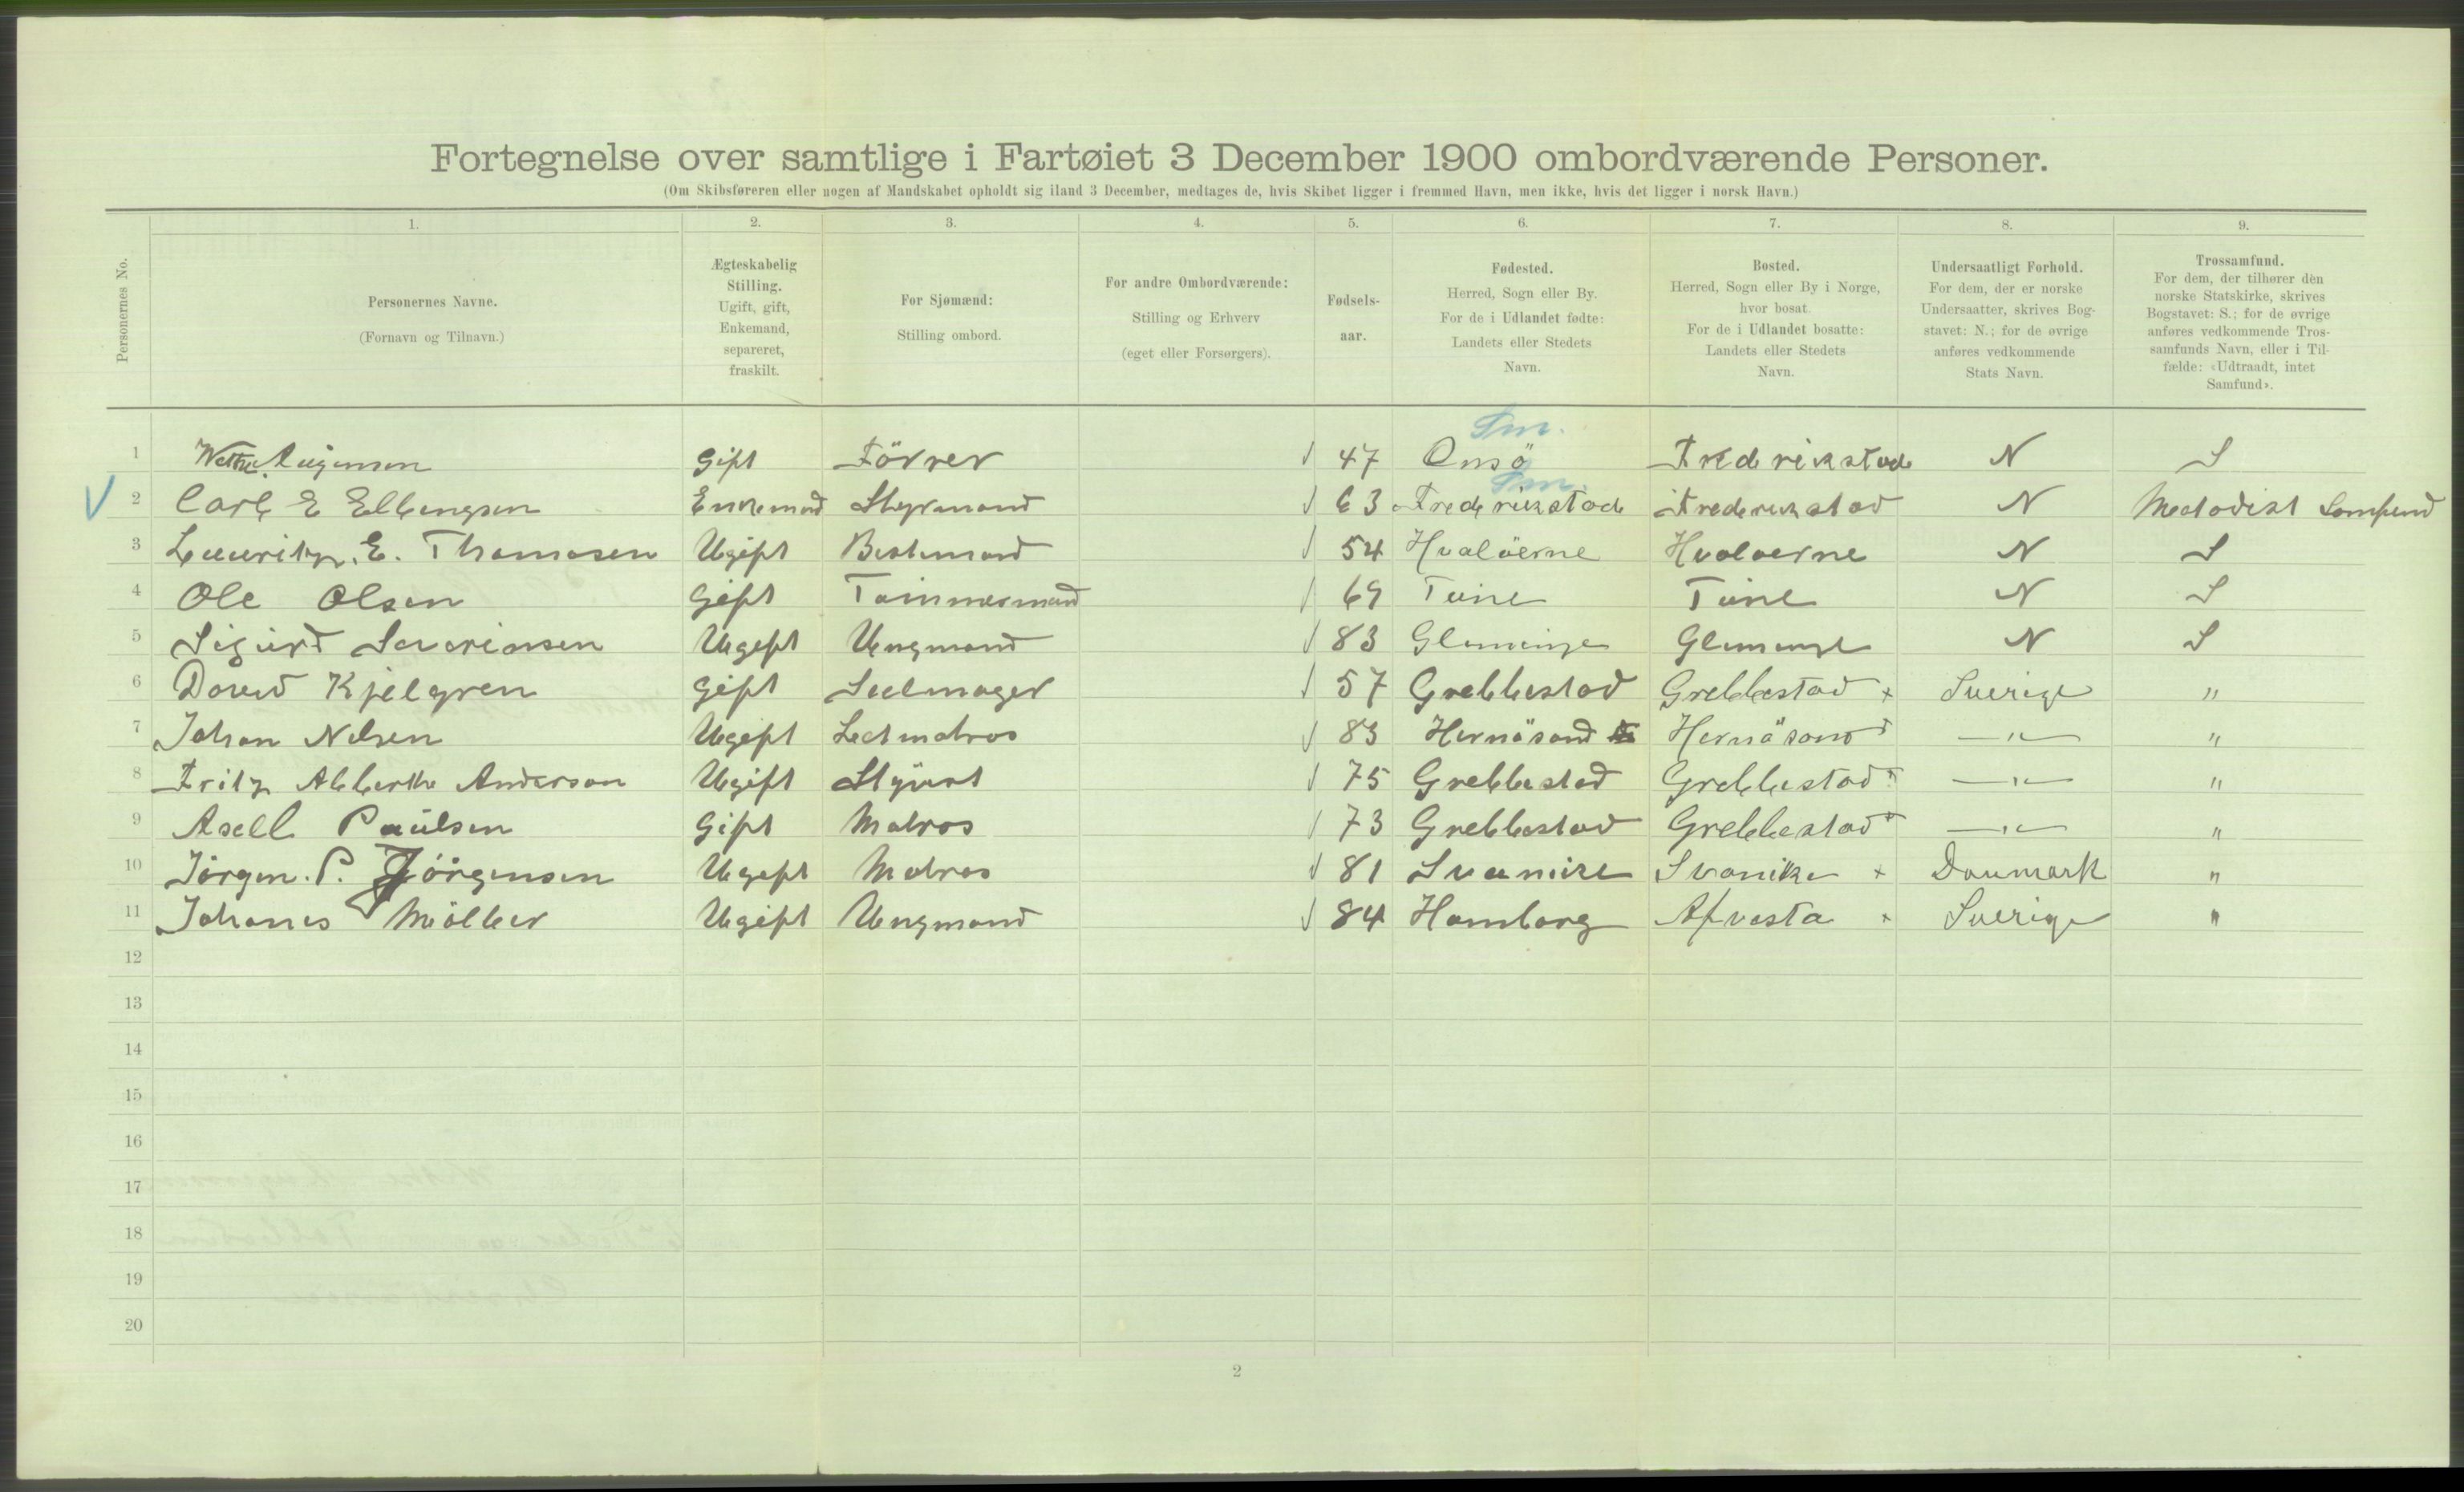 Fortegnelse over samtlige i Fartøiet 3 December 1900 ombordværende Personer.
(Om Skibsføreren eller nogen af Mandskabet opholdt sig iland 3 December, medtages de, hvis Skibet ligger i fremmed Havn, men ikke, hvis det ligger i norsk Havn.)
Personernes No.
1. 2. 3. 4. 5. 6. 7. 8. 9.
Personernes Navne.
(Fornavn og Tilnavn.)
Ægteskabelig
Stilling.
Ugift, gift,
Enkemand,
separeret,
fraskilt.
For Sjømænd:
Stilling ombord.
For andre Ombordværende:
Stilling og Erhverv
(eget eller Forsørgers).
Fødsels-
aar.
Fødested.
Herred, Sogn eller By.
For de i Udlandet fødte:
Landets eller Stedets
Navn.
Bosted.
Herred, Sogn eller By i Norge,
hvor bosat.
For de i Udlandet bosatte:
Landets eller Stedets
Navn.
Undersaatligt Forhold.
For dem, der er norske
Undersaatter, skrives Bog-
stavet: N.; for de øvrige
anføres vedkommende
Stats Navn.
Trossamfund.
For dem, der tilhører den
norske Statskirke, skrives
Bogstavet: S.; for de øvrige
anføres vedkommende Tros-
samfunds Navn, eller i Til-
fælde: «Udtraadt, intet
Samfund».
Sm.
1 gift Förrer 47 Onsö Fredrikstad N S
Sm.
2 Carl E Ellengsen Enkemand Styrmand 63 Frederikstad Frederikstad N Metodist Samfund
3 Lauritz. E. Thomasen Ugift Bestmand 54 Hvalöerne Hvaloerne N S
4 Ole Olsen gift Tømmermand 69 Tune Tune N S
5 Sigurd Severinsen Ugift Ungmand 83 Gleminge Glemenge N S
6 David Kjelgren gift Seelmager 57 Grebbestad Grebbestad × Sverige "
7 Johan Nilsen Ugift Letmatros 83 Hernösand Hernösand —"— "
8 Fritz Alberth Anderson Ugift Styürt 75 Grebbestad Grebbestad —"— "
9 Axell Paulsen Gift Matros 73 Grebbestad Grebbestad —"— "
10 Jörgen. P. Jörgensen Ugift Matros 81 Svanike Svanike × Danmark "
11 Johanes Möller Ugift Ungmand 84 Hamborg Afvesta × Sverige "
12
13
14
15
16
17
18
19
20
2